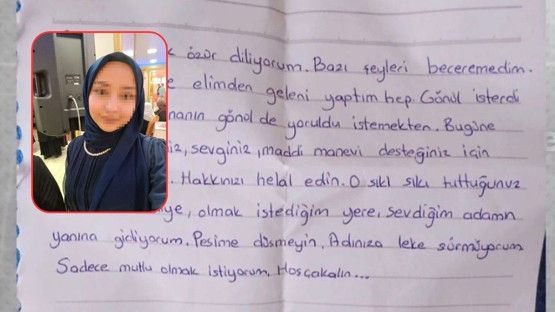 özür diliyorum. Bazı şeyleri beceremedim.
elimden geleni yaptım hep. Gönül isterdi
gönol de yoruldu istemekten. Bugüne
sevginiz, maddi manevi desteğiniz için
Hakkınızı helal edin. O sıkı sıkı tuttuğunuz
olmak istediğim yere, sevdiğim adamın
yanına gidiyorum. Peşime düşmeyin. Adınıza leke sürmüyorum
Sadece mutlu olmak istiyorum. Hoşçakalın...